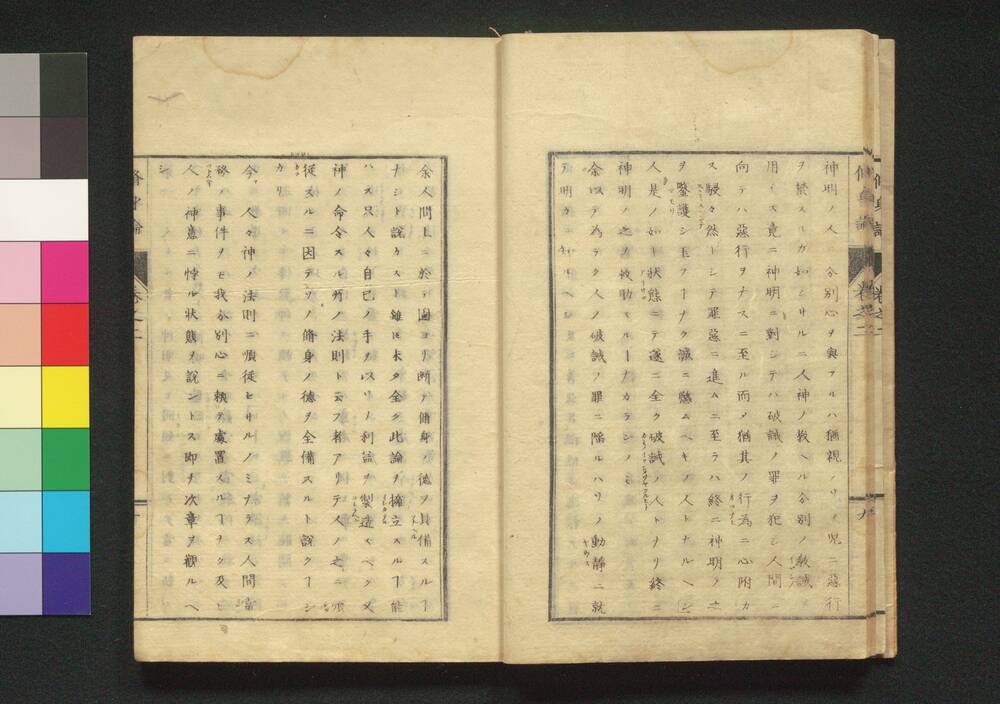 神明ノ人ニ分別心ヲ與フルハ猶親ノソノ児ニ惡行
ヲ禁スルカ如シサルニ人神ノ教ヘル分別ノ教誡ヲ
用イス竟ニ神明ニ對シテハ破誡ノ罪ヲ犯シ人間ニ
向テハ惡行ヲナスニ至ル而メ猶其ノ行為ニ心附カ
ス駸々然トシテ罪惡ニ進ムニ至ラハ終ニ神明ノ之
ヲ鑒護シ玉フーナク誠ニ愍ムヘキノ人トナルヘシ
人是ノ如キ状態ニテ遂ニ全ク破誡ノ人トナリ終ニ
神明ノ之ヲ救助スルーナカラン
余以テ為ラク人ノ破誡ノ罪ニ陥ルハソノ動静ニ就
テ明カニ知ルヘシ
余人間上ニ於テ固ヨリ断テ脩身ノ徳ヲ具備スルー
ナシト説クスト雖モ未タ全ク此論ヲ擁立スルー能
ハス只人々自己ノ手ヲ以ソノ利益ヲ製造スヘク又
神ノ命令スル所ノ法則ト云フ者アリテ人ノ之ニ順
從スルニ因テソノ脩身ノ徳ヲ全備スルト説クーシ
カリ
今ヤ人々神ノ法則ニ順從セサルノミナラス人間當
務ノ事件ヲモ我分別心ニ執テ處置スルーナク及ヒ
人ノ神意ニ悖ル状態ヲ説ントス即チ次章ヲ觀ルヘ
シ
脩身論
巻之二
九